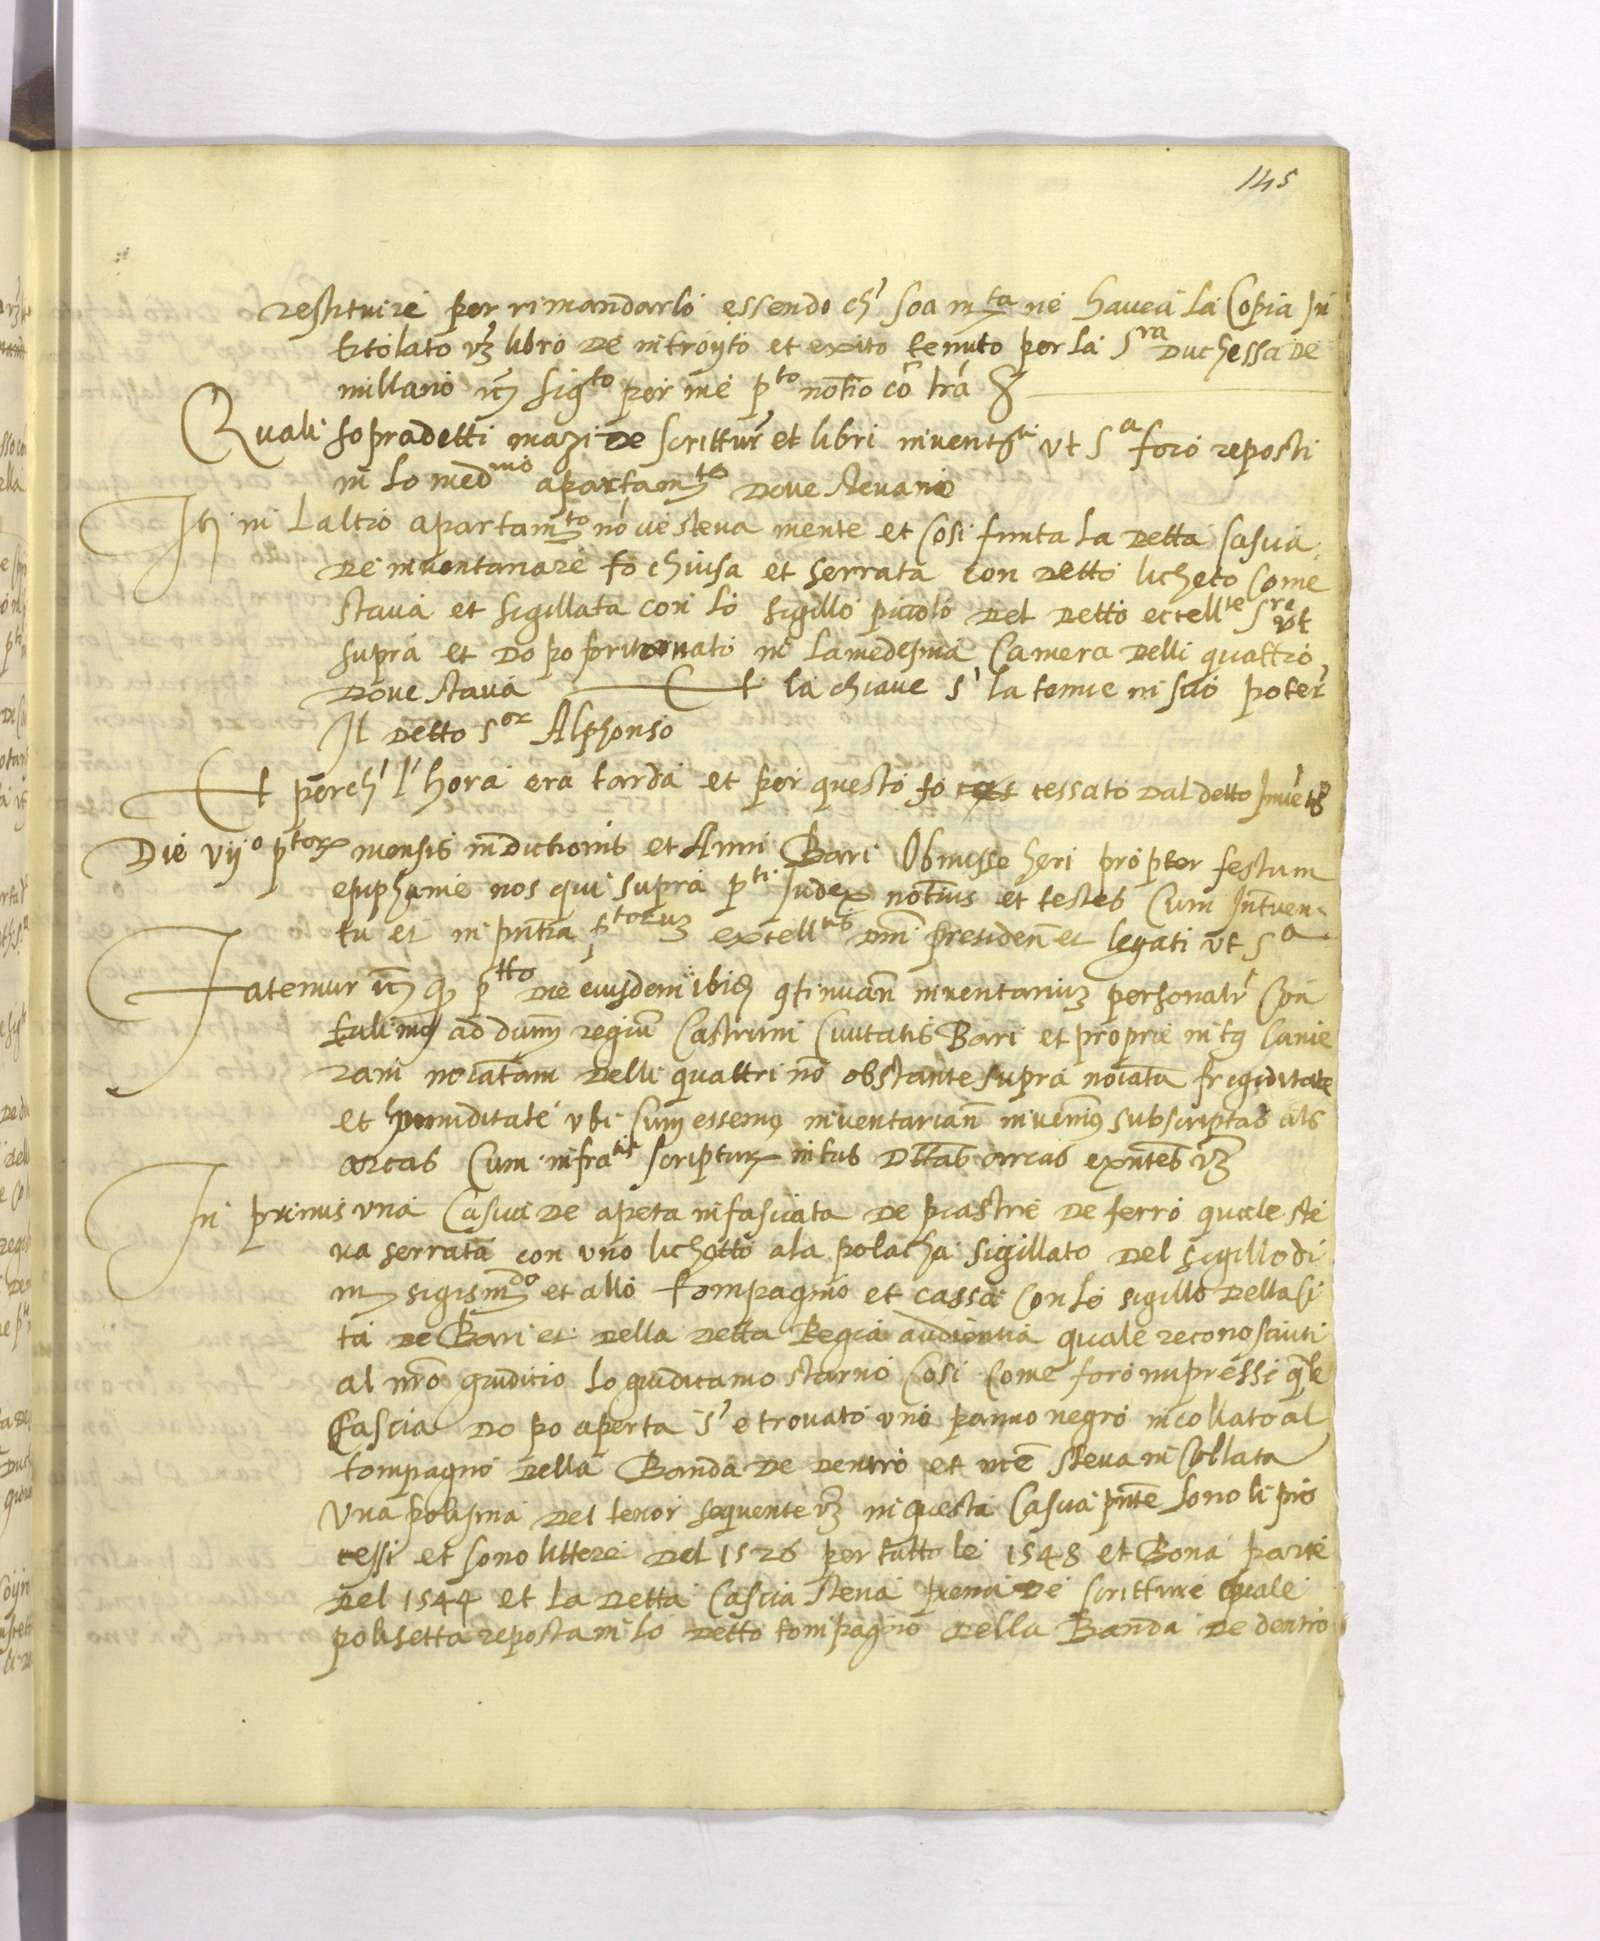 145
restituire per rimandarlo essendo ch' soa m.ta ne havea la Copia in
titolato vz libro de introyto et exito tenuto per la S.ra Duchessa de
millano sig.to per me p.to not.io co lra &
Quali sopradetti mazi de scritture et libri ut S.a foro reposti
in lo med.mo apartam.to dove stevano
It in laltro apartam.to no ve steva niente et cosi finita la detta cascia
de inventariare fo chiusa et serrata con detto licheto come
stava et sigillata con lo sigillo piccolo del detto eccell.te S.re ut
supra et dopo ritornato in la medesma Camera delli quattro
dove stava Et la chiave s' la tenne in suo poter
Il detto S.or Alphonso
Et perch' l'hora era tarda et per questo fo cessato dal detto
Die vij.o p.torz mensis indictionis et Anni Bari Obmisse heri propter festum
epiphanie nos qui supra p.ti Judex notius et testes Cum Interven
tu et in pntia p.torum excell.tis dni presiden et legati ut S.a
Fatemur p.tto die eiusdem ibiq qtinuan inventarium personalr Con
tulimus ad dum regium Castrum Civitatis Bari et proprie intus Came
ram noiatam delli quattri no obstante supra noiata frigiditate
et humiditate ubi Cum essemus inventarian invenimus subscriptas als
arcas Cum infra.tis scripturz intus dttas arcas exntes vz
In primis una Cascia de apeta infasciata de piastre de ferro quale ste
va serrata con uno lichetto ala polacha sigillato del sigillo di
m sigism.do et allo tompagnio et cassa con lo sigillo della ci
ta de Bari et della detta Regia audientia quale reconosciuti
al nro giuditio lo giudicamo starno cosi come foro impressi qle
Cascia dopo aperta s' e trovato uno panno negro incollato al
tompagno della Banda de dentro et steva in Collata
Una polisina del tenor sequente vz in questa Cascia pnte sono li pro
cessi et sono littere del 1526 per tutto le 1548 et Bona parte
del 1544 et la detta Cascia steva piena de scritture quale
polisetta reposta in lo detto tompagno della Banda de dentro